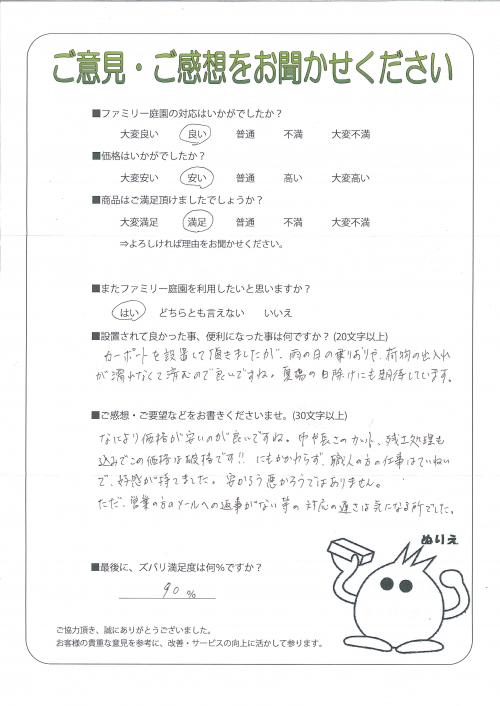 ご意見・ご感想をお聞かせください
■ファミリー庭園の対応はいかがでしたか？
大変良い 良い 普通 不満 大変不満
■価格はいかがでしたか？
大変安い 安い 普通 高い 大変高い
■商品はご満足頂けましたでしょうか？
大変満足 満足 普通 不満 大変不満
⇒よろしければ理由をお聞かせください。
■またファミリー庭園を利用したいと思いますか？
はい どちらとも言えない いいえ
■設置されて良かった事、便利になった事は何ですか？(20文字以上)
カーポートを設置して頂きましたが、雨の日の乗りおりや、荷物の出入れ
が濡れなくて済むので良いですね。夏場の日除けにも期待しています。
■ご感想・ご要望などをお書きくださいませ。(30文字以上)
なにより価格が安いのが良いですね。巾や長さのカット、残土処理も
込みでこの価格は破格です!! にもかかわらず、職人の方の仕事はていねい
で、好感が持てました。安かろう悪かろうではありません。
ただ、営業の方のメールへの返事がない等の対応の遅さは気になる所でした。
ぬりえ
■最後に、ズバリ満足度は何％ですか？
90 %
ご協力頂き、誠にありがとうございました。
お客様の貴重な意見を参考に、改善・サービスの向上に活かして参ります。